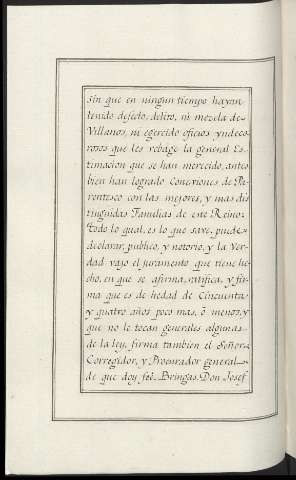 sin que en ningun tiempo hayan
tenido defecto, delito, ni mezcla de
Villanos, ni egercido oficios yndeco-
rosos que les rebage la general Es-
timacion que se han merecido, antes
bien han logrado Conexiones de Pa-
rentesco con las mejores, y mas dis
tinguidas Familias de este Reino:
todo lo qual, es lo que save, puede
declarar, publico, y notorio, y la Ver-
dad vajo el juramento que tiene he-
cho, en que se afirma, ratifica, y fir-
ma que es de hedad de Cincuenta
y quatro años poco mas, ó menos, y
que no le tocan generales algunas
de la ley, firma tambien el Señor
Corregidor, y Procurador general
de que doy feé. Bringas. Don Josef